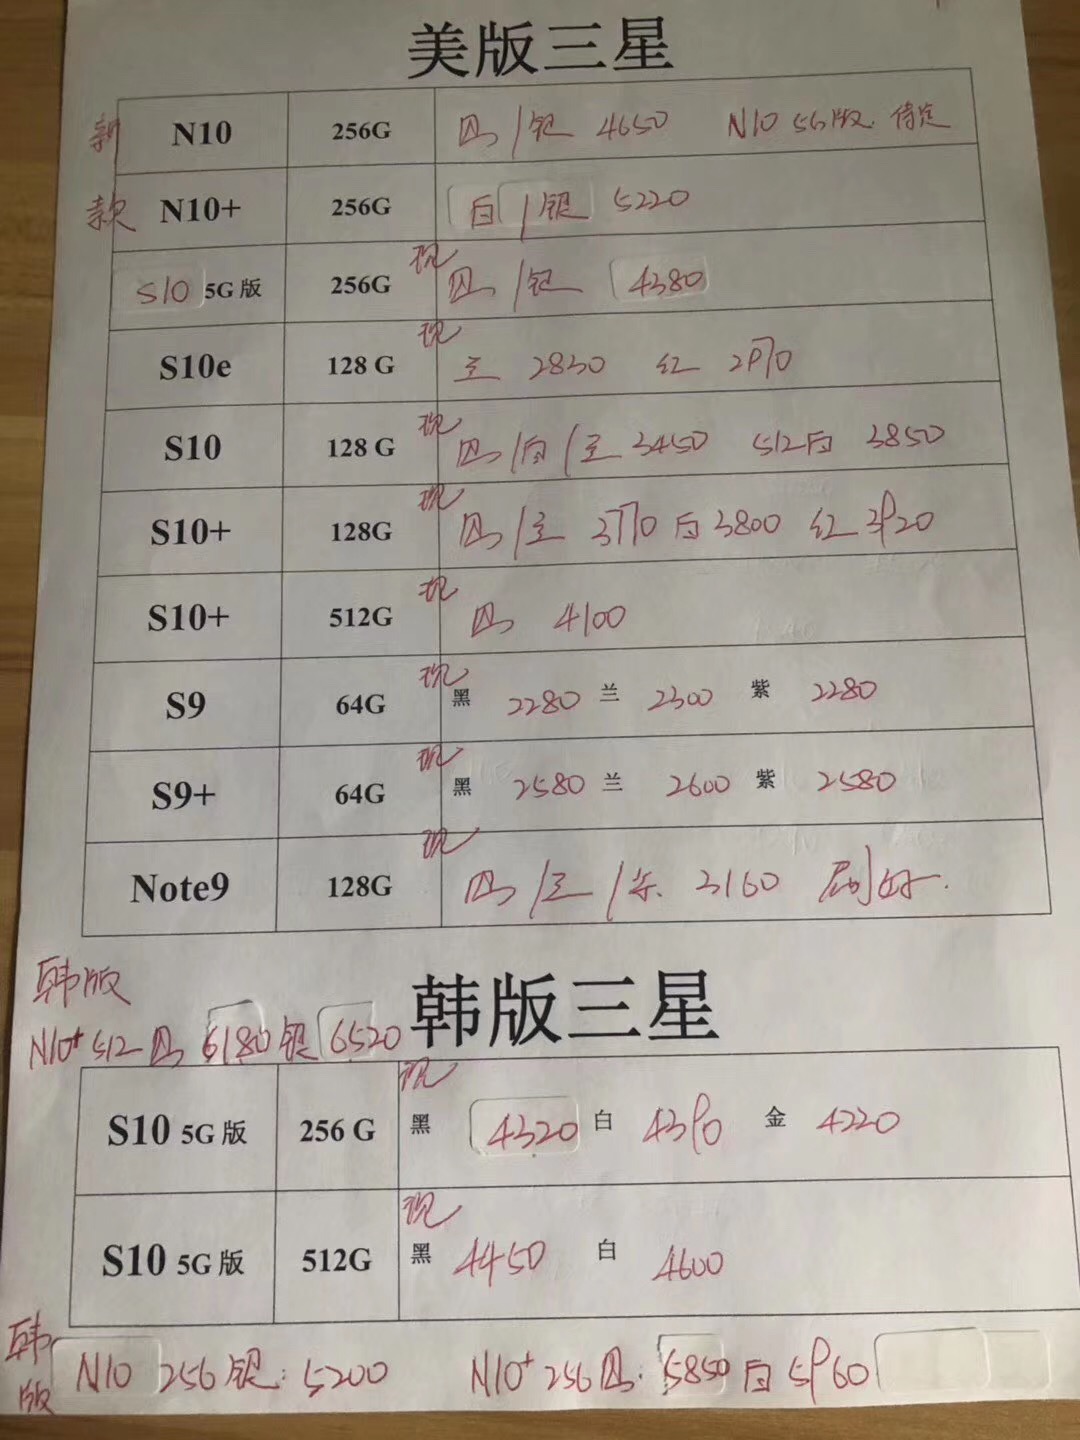 美版三星
新 N10 256G 黑/银 4650 N10 5G版 待定
款 N10+ 256G 白/银 5220
S10 5G版 256G 现 黑/银 4380
S10e 128 G 现 兰 2830 红 2970
S10 128 G 现 黑/白/兰 3450 512白 3850
S10+ 128G 现 黑/兰 3770 白 3800 红 3920
S10+ 512G 现 黑 4100
S9 64G 现 黑 2280 兰 2300 紫 2280
S9+ 64G 现 黑 2580 兰 2600 紫 2580
Note9 128G 现 黑/兰/紫 3160
韩版
N10+ 512 黑 6180 银 6520
韩版三星
S10 5G版 256 G 现 黑 4320 白 4390 金 4220
S10 5G版 512G 现 黑 4450 白 4600
韩版 N10 256 银: 5200 N10+ 256 黑: 5850 白 5960